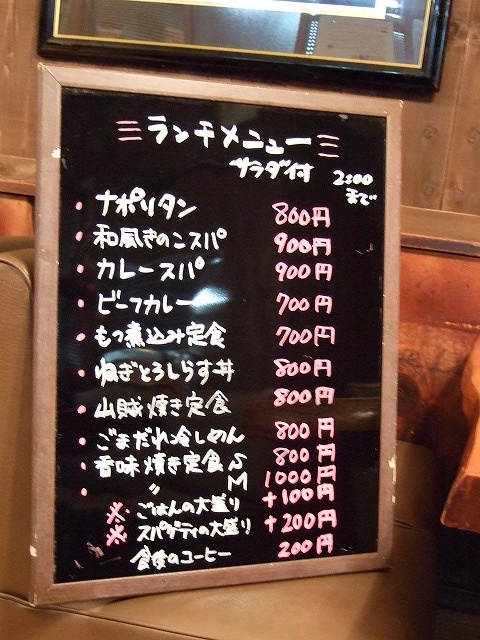 ランチメニュー
サラダ付 2:00まで
ナポリタン 800円
和風きのこスパ 900円
カレースパ 900円
ビーフカレー 700円
もつ煮込み定食 700円
ねぎとろしらす丼 800円
山賊焼き定食 800円
ごまだれ冷しめん 800円
香味焼き定食 S 800円
〃 M 1000円
※ ごはんの大盛り +100円
※ スパゲティの大盛り +200円
食後のコーヒー 200円